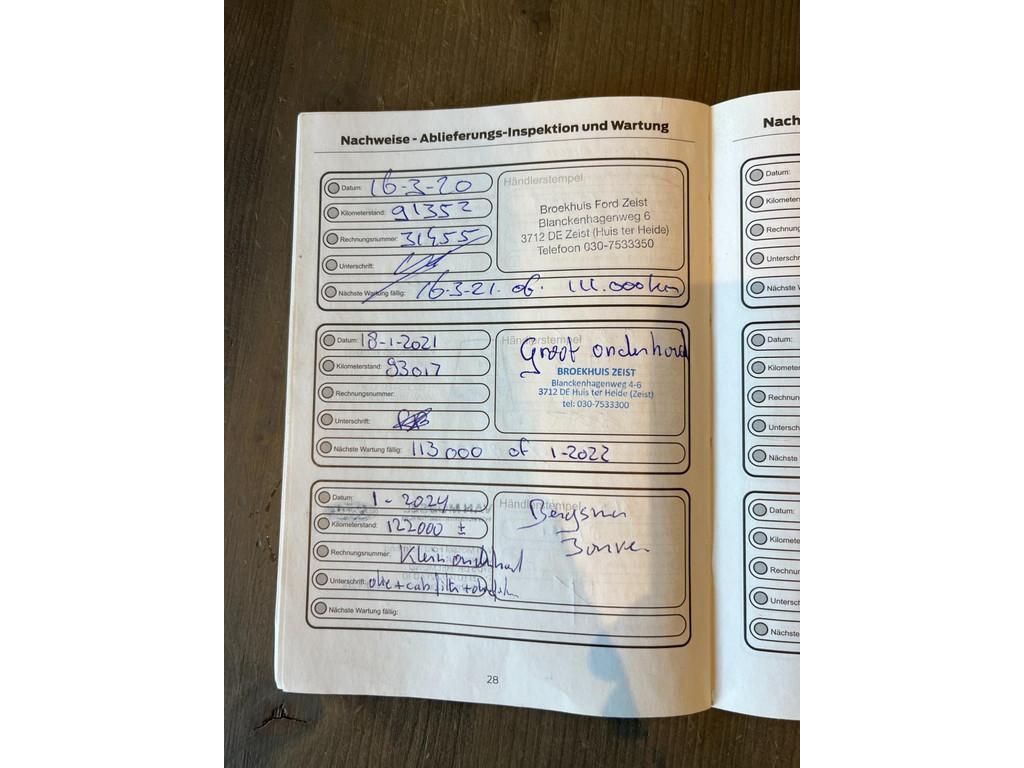 Nachweise - Ablieferungs-Inspektion und Wartung
Datum: 16-3-20
Kilometerstand: 91352
Rechnungsnummer: 31455
Unterschrift:
Nächste Wartung fällig: 16-3-21. of. 111.000km
Händlerstempel
Broekhuis Ford Zeist
Blanckenhagenweg 6
3712 DE Zeist (Huis ter Heide)
Telefoon 030-7533350
Datum: 18-1-2021
Kilometerstand: 93017
Rechnungsnummer:
Unterschrift:
Nächste Wartung fällig: 113000 of 1-2022
Händlerstempel
Groot onderhoud
BROEKHUIS ZEIST
Blanckenhagenweg 4-6
3712 DE Huis ter Heide (Zeist)
tel: 030-7533300
Datum: 1-2024
Kilometerstand: 122000 ±
Rechnungsnummer: Klein onderhoud
Unterschrift: olie + cab filter +
Nächste Wartung fällig:
Händlerstempel
28
Nach
Datum:
Kilometer
Rechnung
Unterschr
Nächste W
Datum:
Kilometer
Rechnun
Untersch
Nächste
Datum:
Kilomete
Rechnur
Untersc
Nächste